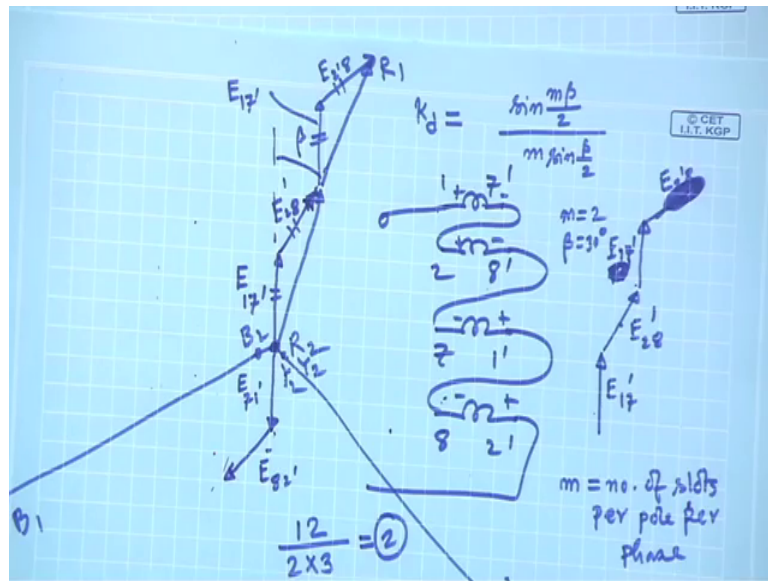 I.I.T. KGP
© CET
I.I.T. KGP
E₂₈'
R₁
E₁₇'
β
E₂₈'
E₁₇'
B₂
R₂
Y₂
Y₂
E₇₁'
E₈₂'
B₁
K_d = sin mβ/2 / m sin β/2
1 + 7' -
2 + - 8'
7 - + 1'
8 - + 2'
m=2
β=30°
E₁₇'
E₂₈'
E₂₈'
E₁₇'
12 / 2×3 = 2
m = no. of slots
per pole per
phase